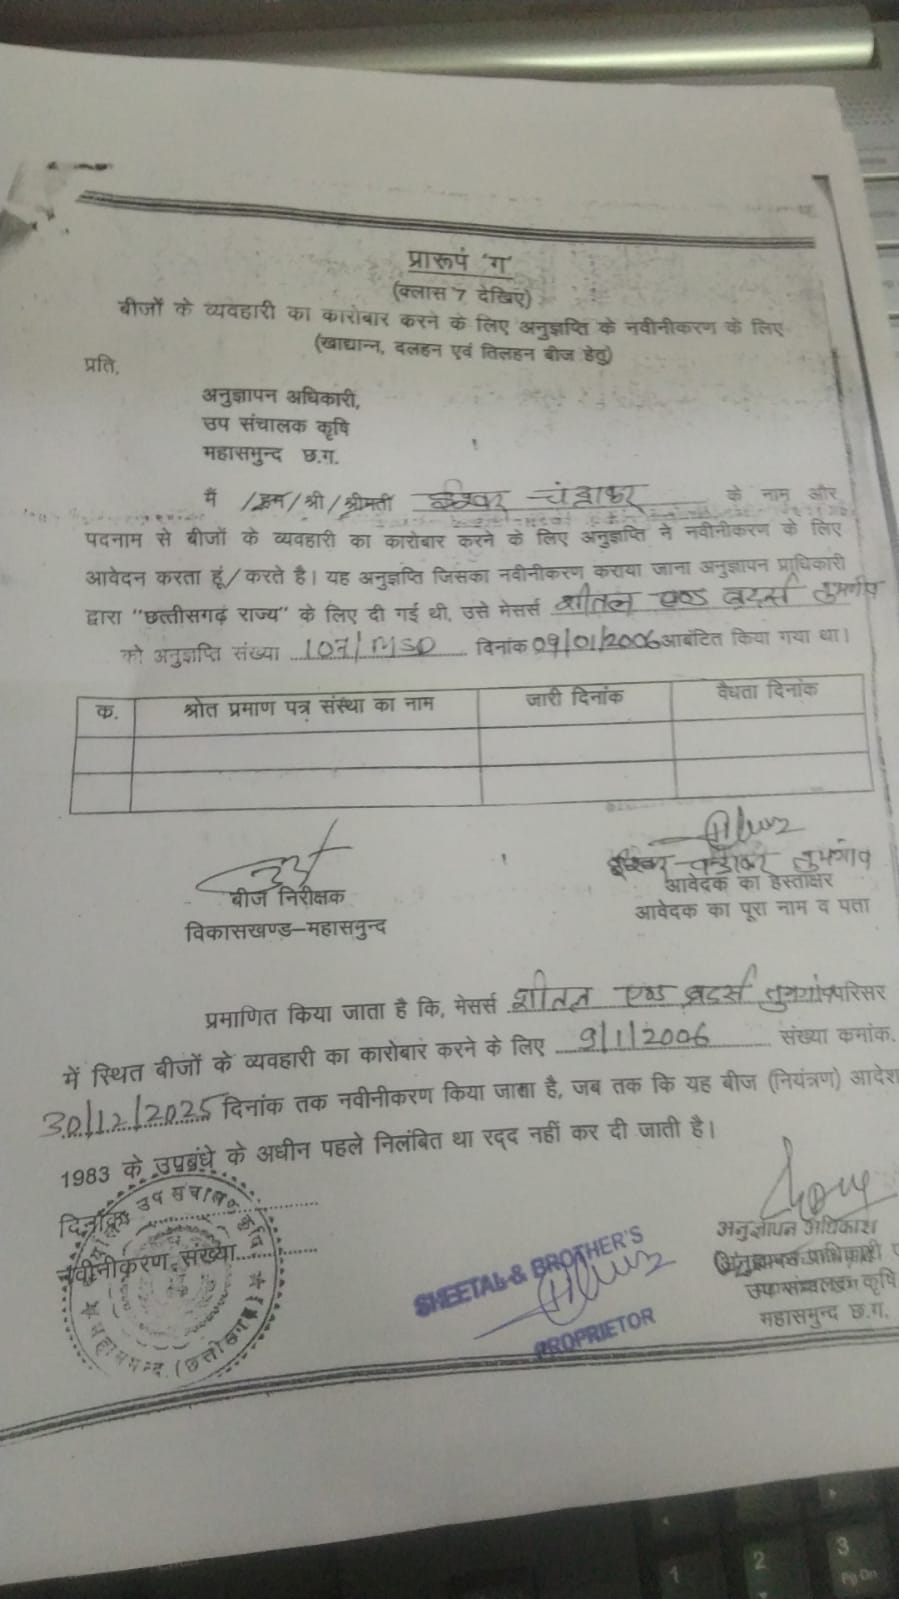 प्रारूपं 'ग'
(क्लास 7 देखिए)
बीजों के व्यवहारी का कारोबार करने के लिए अनुज्ञप्ति के नवीनीकरण के लिए
(खाद्यान्न, दलहन एवं तिलहन बीज हेतु)
प्रति,
अनुज्ञापन अधिकारी,
उप संचालक कृषि
महासमुन्द छ.ग.
मैं /हम/श्री/श्रीमती ईश्वर चंद्राकर के नाम और
पदनाम से बीजों के व्यवहारी का कारोबार करने के लिए अनुज्ञप्ति ने नवीनीकरण के लिए
आवेदन करता हूं/करते है। यह अनुज्ञप्ति जिसका नवीनीकरण कराया जाना अनुज्ञापन प्राधिकारी
द्वारा "छत्तीसगढ़ राज्य" के लिए दी गई थी, उसे मेसर्स शीतल एण्ड ब्रदर्स तुमगांव
को अनुज्ञप्ति संख्या 107/MSD दिनांक 09/01/2006 आबंटित किया गया था।
क. श्रोत प्रमाण पत्र संस्था का नाम जारी दिनांक वैधता दिनांक
ईश्वर चन्द्राकर तुमगांव
बीज निरीक्षक आवेदक का हस्ताक्षर
विकासखण्ड–महासमुन्द आवेदक का पूरा नाम व पता
प्रमाणित किया जाता है कि, मेसर्स शीतल एण्ड ब्रदर्स तुमगांव परिसर
में स्थित बीजों के व्यवहारी का कारोबार करने के लिए 9/1/2006 संख्या कमांक.
30/12/2025 दिनांक तक नवीनीकरण किया जाता है, जब तक कि यह बीज (नियंत्रण) आदेश
1983 के उपबंधे के अधीन पहले निलंबित था रद्द नहीं कर दी जाती है।
दिनांक
नवीनीकरण संख्या
उप संचालक कृषि
महासमुन्द (छत्तीसगढ़)
SHEETAL & BROTHER'S
PROPRIETOR
अनुज्ञापन अधिकारी
उप संचालक कृषि
महासमुन्द छ.ग.
1
2
3
Pg Dn